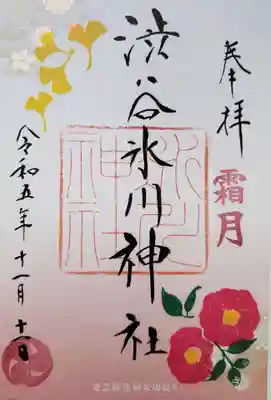 奉拝
霜月
渋谷氷川神社
令和五年十一月十一日